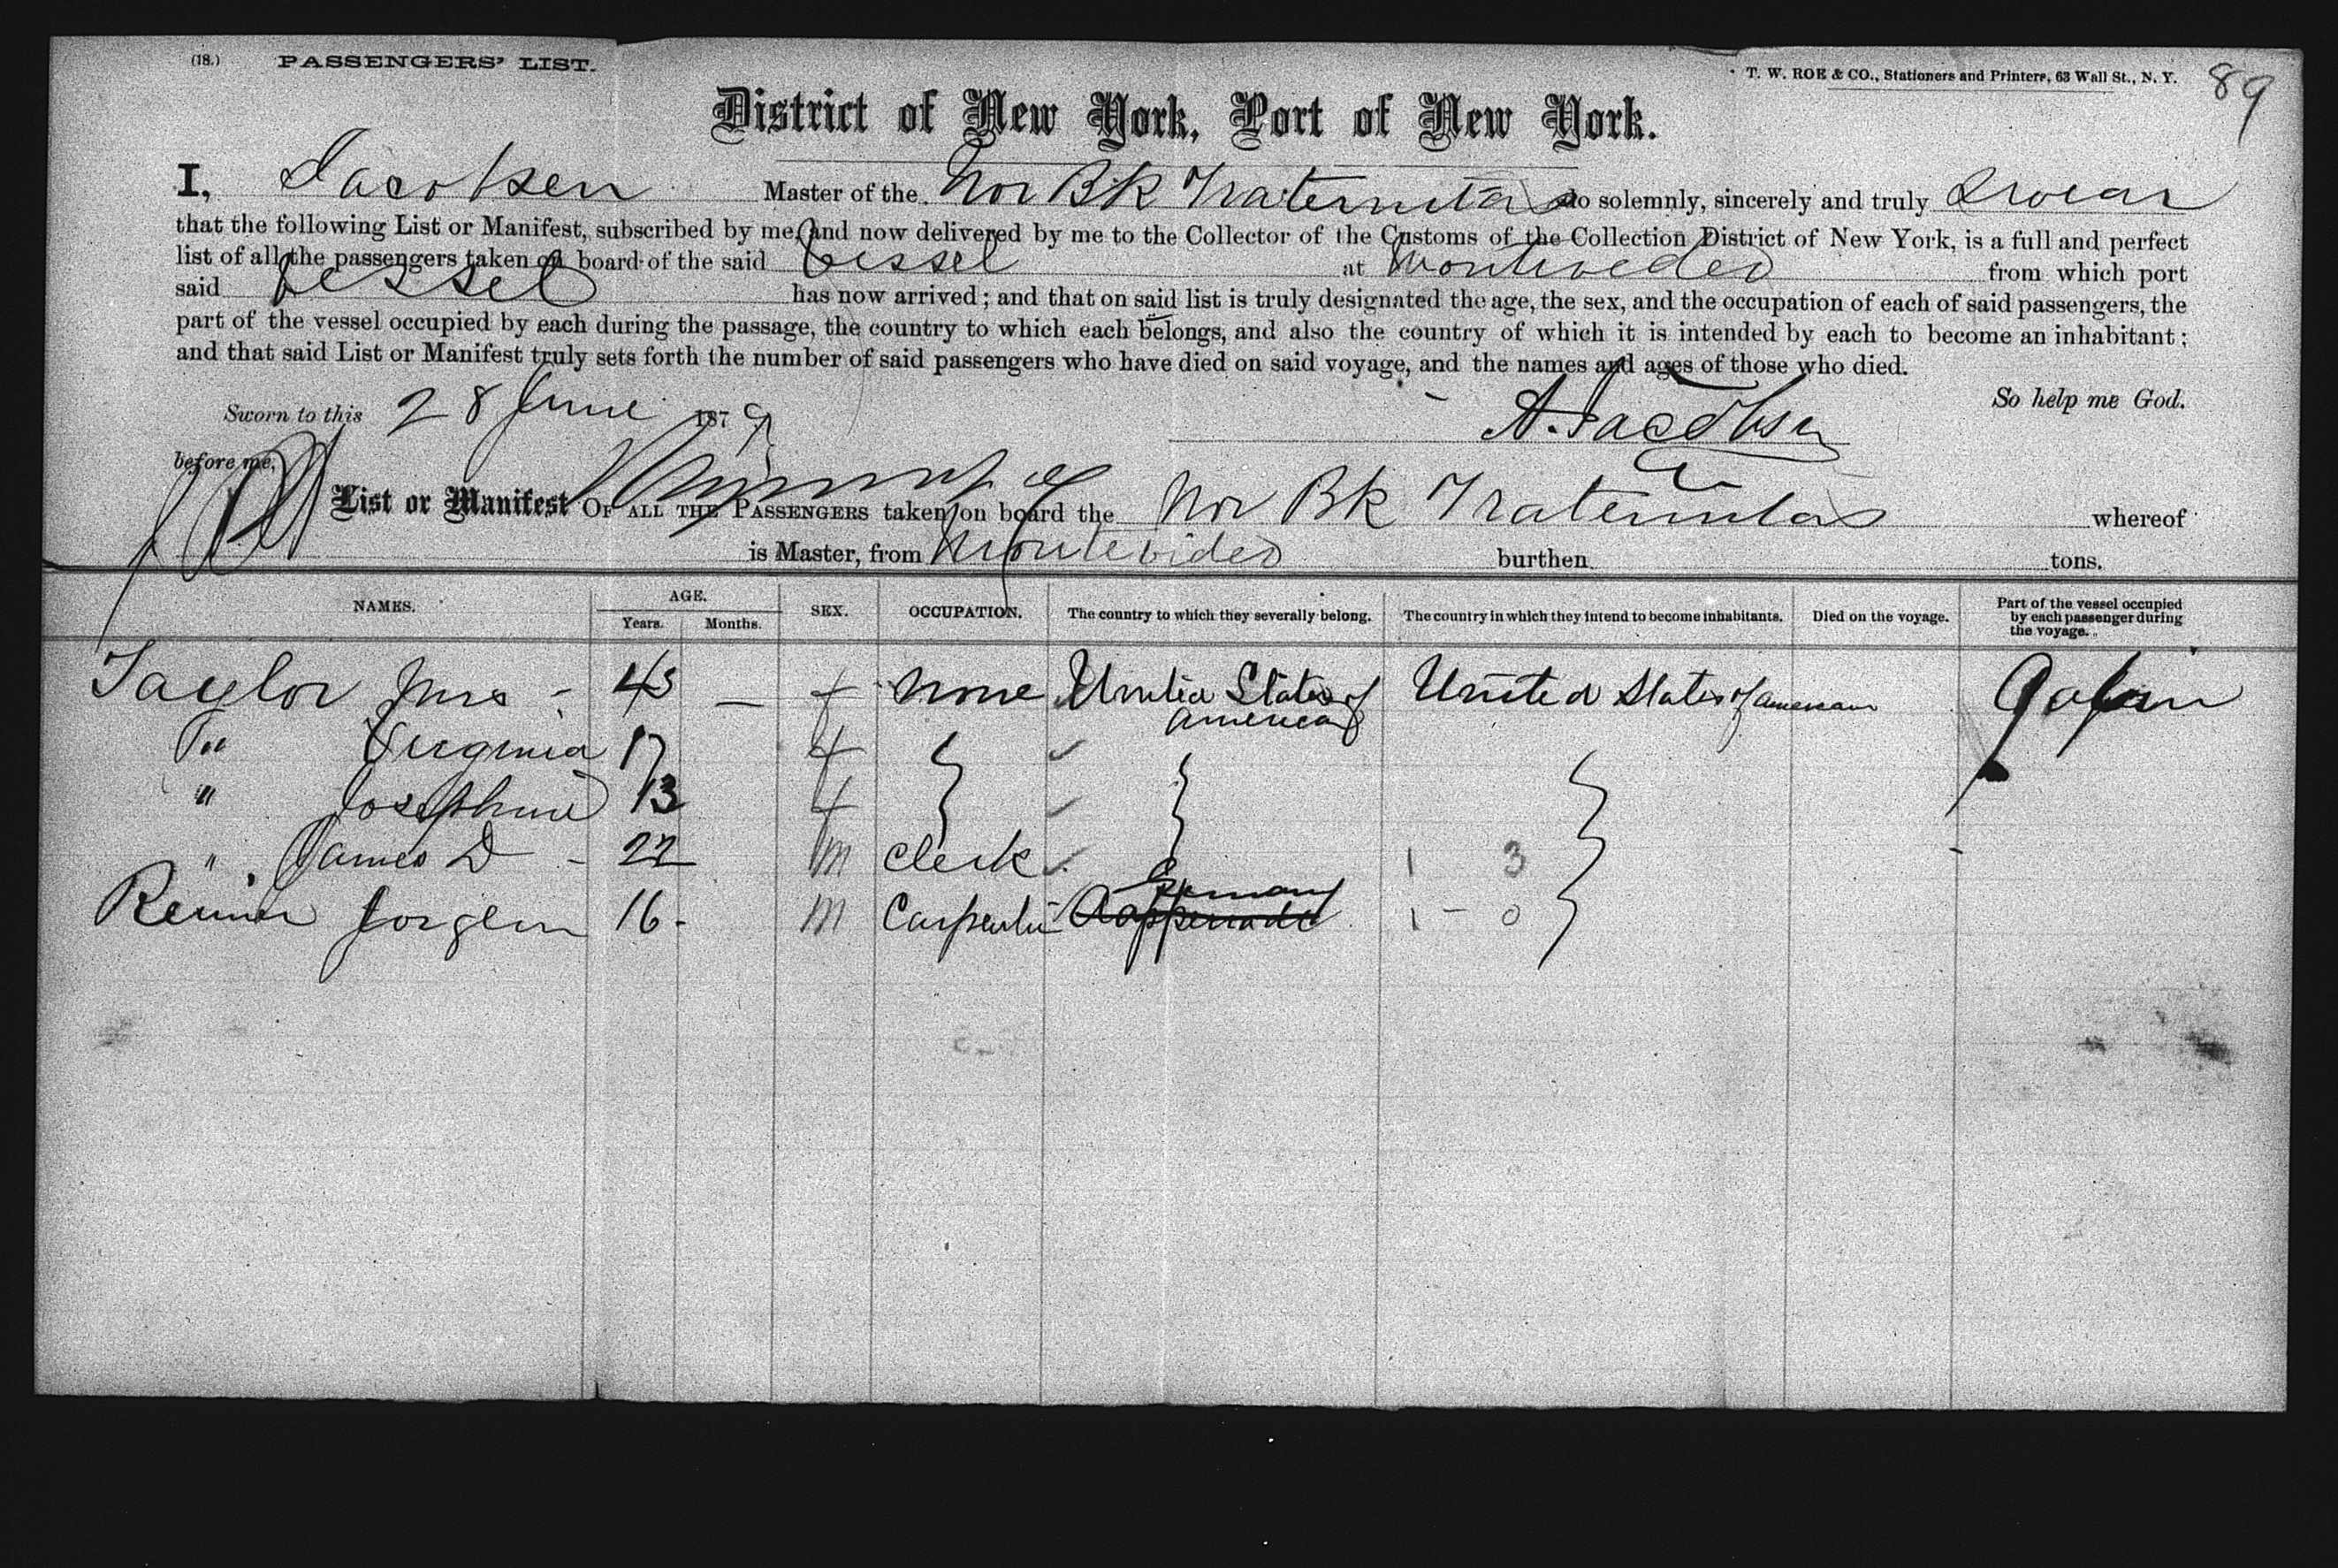 (18.) PASSENGERS' LIST.
T. W. ROE & CO., Stationers and Printers, 63 Wall St., N. Y.
89
District of New York, Port of New York.
I, Jacobsen Master of the Nor BK Fraternitas do solemnly, sincerely and truly Swear
that the following List or Manifest, subscribed by me, and now delivered by me to the Collector of the Customs of the Collection District of New York, is a full and perfect
list of all the passengers taken on board of the said Vessel at Montevideo from which port
said Vessel has now arrived; and that on said list is truly designated the age, the sex, and the occupation of each of said passengers, the
part of the vessel occupied by each during the passage, the country to which each belongs, and also the country of which it is intended by each to become an inhabitant;
and that said List or Manifest truly sets forth the number of said passengers who have died on said voyage, and the names and ages of those who died.
So help me God.
Sworn to this 28 June 1879
A. Jacobsen
before me,
List or Manifest OF ALL THE PASSENGERS taken on board the Nor BK Fraternitas whereof
is Master, from Montevideo burthen tons.
NAMES. AGE. Years. Months. SEX. OCCUPATION. The country to which they severally belong. The country in which they intend to become inhabitants. Died on the voyage. Part of the vessel occupied by each passenger during the voyage.
Taylor Mrs - 45 — f None United States of America United States of American Cabin
" Virginia 17 f
" Josephine 13 f
" James D - 22 m Clerk 1 3
Jorgen 16 - m Carpenter Germany 1 - 0